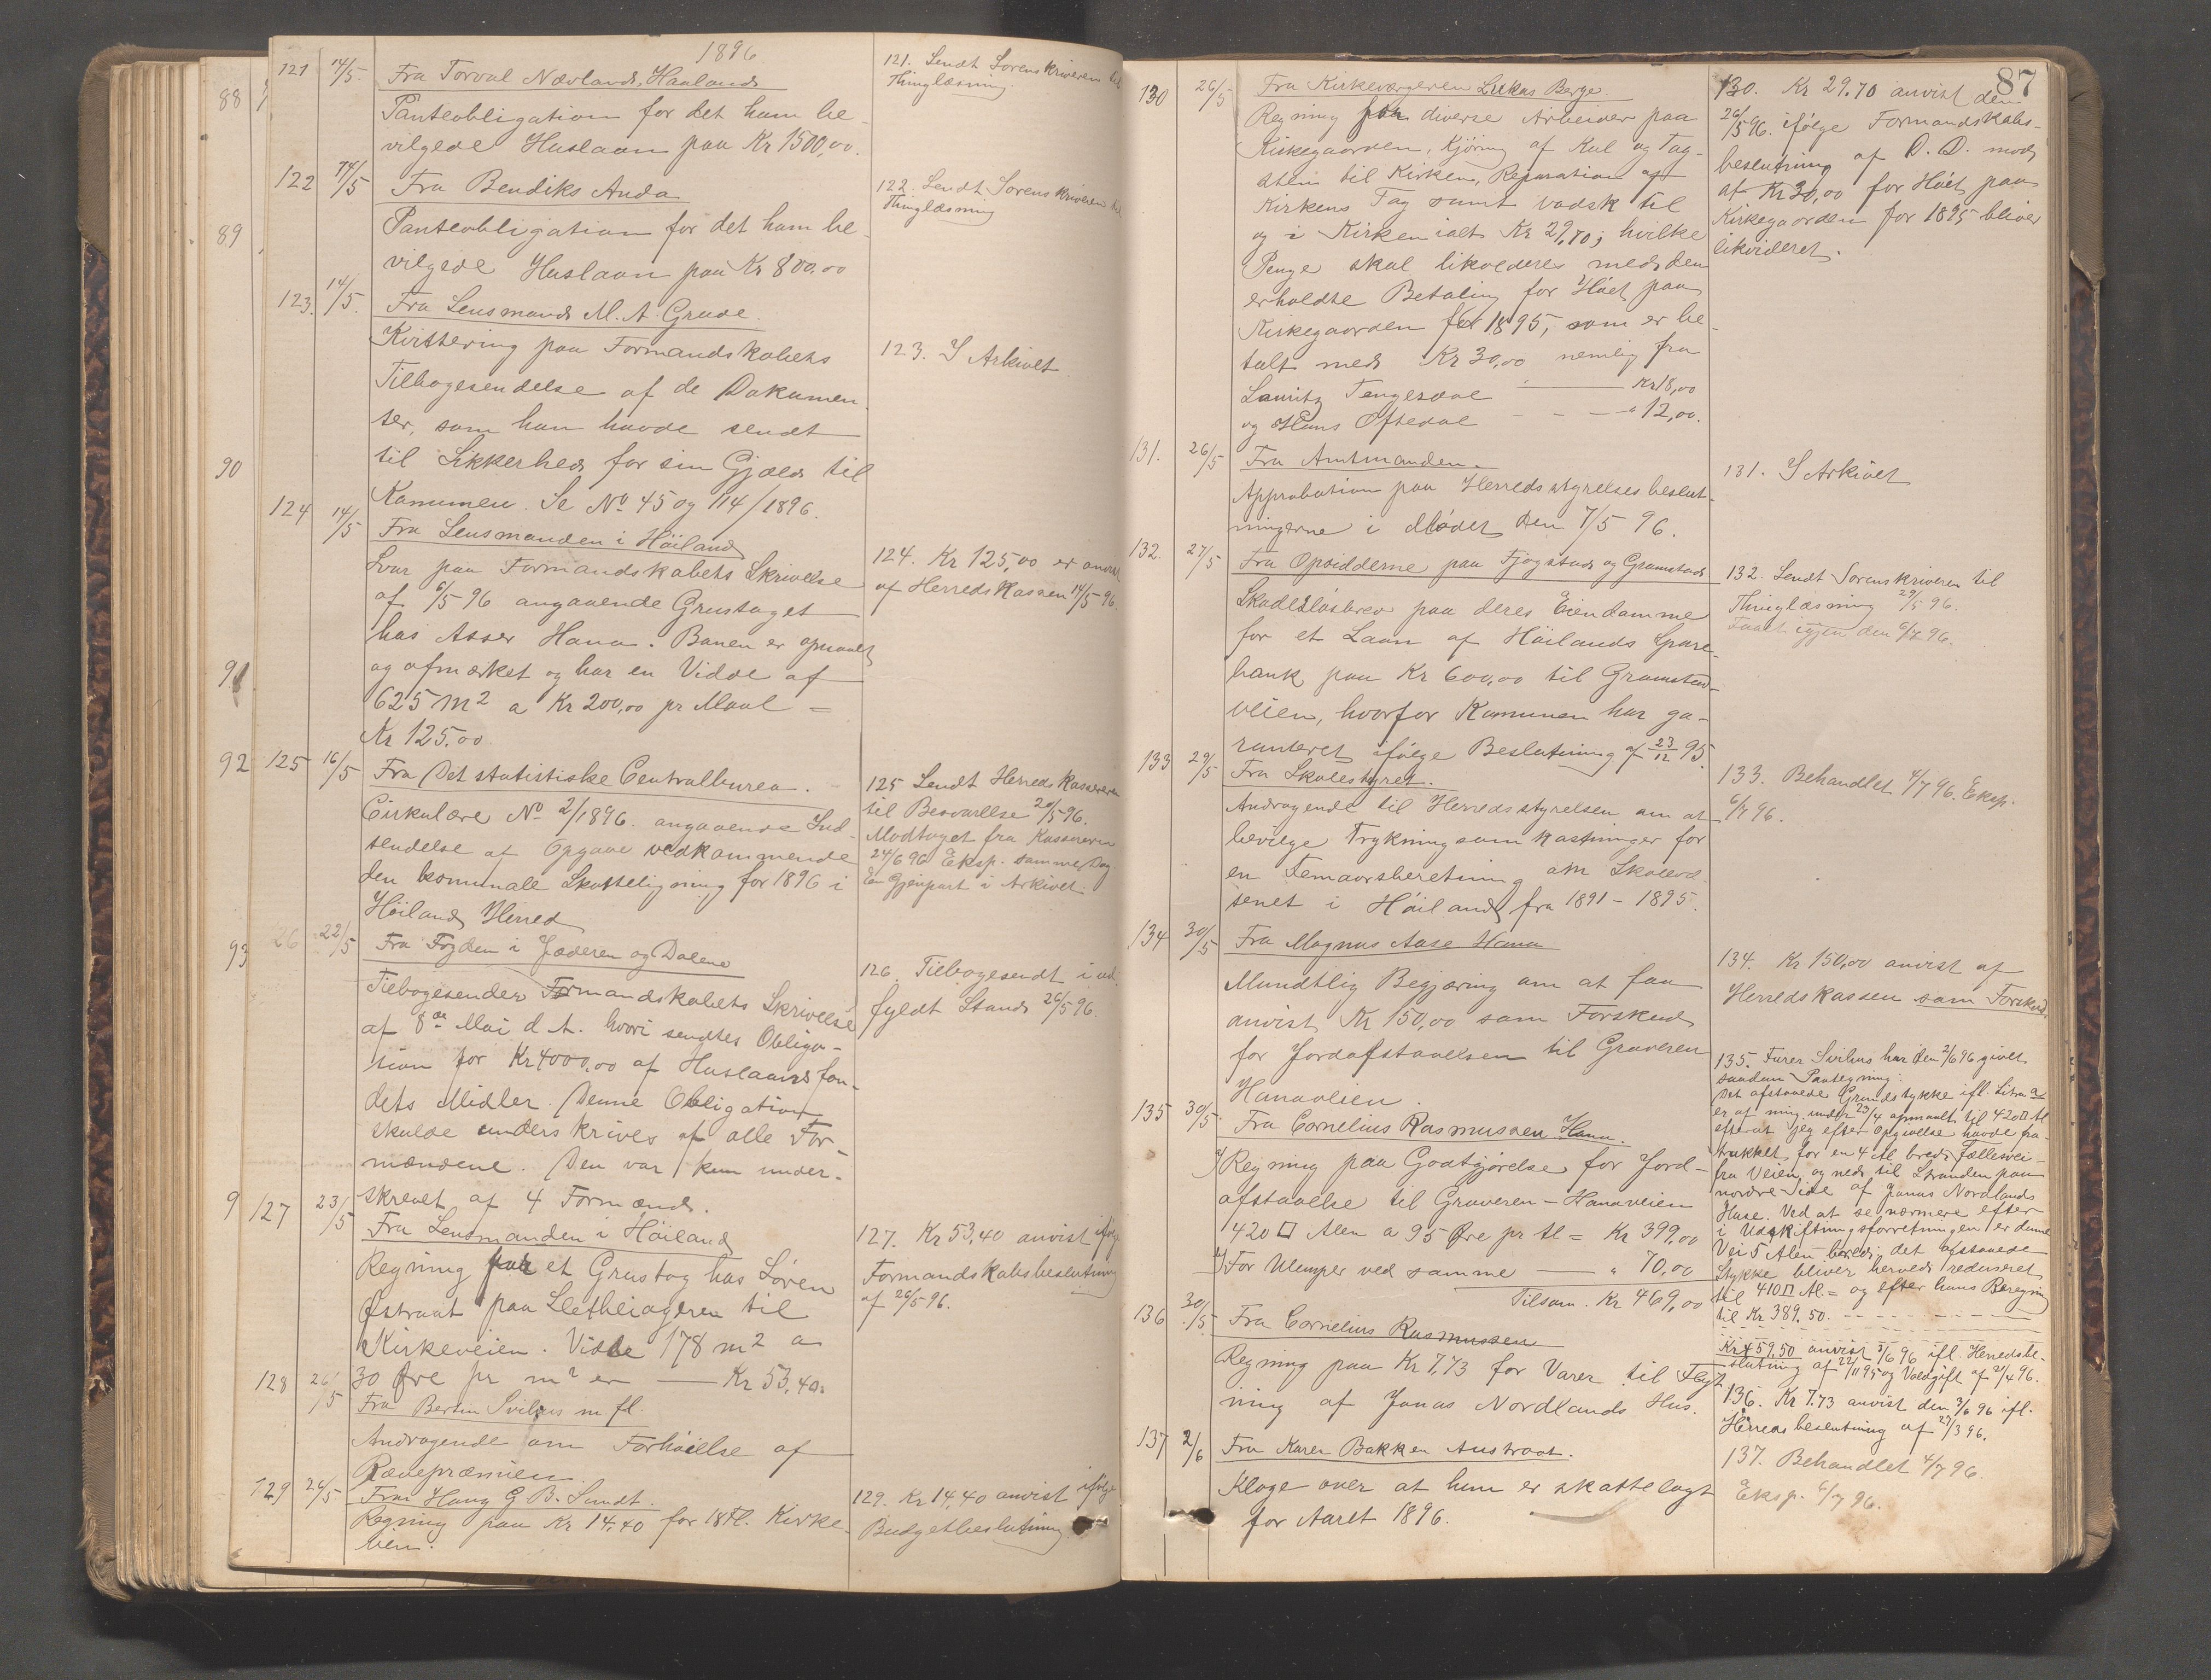 1896
121 14/5. Fra Torval Nævland, Haaland
Panteobligation for det ham be-
vilgede Huslaan paa Kr 1500,00.
121. Sendt Sorenskriveren til
Thinglæsning.
122 14/5 Fra Bendiks Anda
Panteobligation for det ham be-
vilgede Huslaan paa Kr 800.00
122. Sendt Sorenskriveren til
Thinglæsning
123. 14/5. Fra Lensmand M. A. Grude.
Kvittering paa Formandskabets
Tilbagesendelse af de Dokumen-
ter, som han havde sendt
til Sikkerhed for sin Gjæld til
Komunen. Se No 45 og 114/1896.
123. I Arkivet
124 14/5 Fra Lensmanden i Höiland
Svar paa Formandskabets Skrivelse
af 6/5 96 angaaende Grustaget
hos Asser Hana. Banen er opmaalt
og afmærket og har en Vidde af
625 m2 a Kr 200,00 pr Maal =
Kr 125.00
124. Kr 125,00 er anvist
af Herredskassen 14/5 96.
125 16/5 Fra Det statistiske Centralburea.
Cirkulære No 2/1896. angaaende Ind-
sendelse af Opgave vedkommende
den komunale Skatteligning for 1896 i
Höiland Herred
125 Sendt Herredskassereren
til Besvarelse 20/5 96.
Modtaget fra Kassereren
24/6 96 Eksp. samme Dag
En Gjenpart i Arkivet.
126 22/5 Fra Fogden i Jæderen og Dalene
Tilbagesender Formandskabets Skrivelse
af 8de Mai d. A. hvori sendtes Obliga-
tion for Kr 4000.00 af Huslaansfon-
dets Midler. Denne Obligation
skulde underskrives af alle For-
mændene. Den var kun under-
skrevet af 4 Formænd.
126. Tilbagesendt i ud-
fyldt Stand 26/5 96.
127 23/5 Fra Lensmanden i Höiland
Regning paa et Grustag hos Sören
Østraat paa Sletheiageren til
Kirkeveien. Vidde 178 m2 a
30 Øre pr m2 er — Kr 53,40.
127. Kr 53,40 anvist ifølge
Formandskabsbeslutning
af 26/5 96.
128 26/5 Fra Bertin Svihus m. fl.
Andragende om Forhöielse af
Rævepræmien.
129 26/5 Fra Hans G. B. Sundt.
Regning paa Kr 14,40 for 18 Fl. Kirke-
vin.
129. Kr 14,40 anvist ifølge
Budgetbeslutning
88
89
90
91
92
93
9
87
130 26/5 Fra Kirkeværgeren Lukas Berge.
Regning paa diverse Arbeider paa
Kirkegaarden, Kjöring af Kul og Tag-
sten til Kirken, Reparation af
Kirkens Tag samt vadsk til
og i Kirken ialt Kr 29,70; hvilke
Penge skal likvideres med den
erholdte Betaling for Höiet paa
Kirkegaarden for 1895, som er be-
talt med Kr 30,00 nemlig fra
Lauritz Tengesdal — Kr 18,00
og Hans Oftedal - - - " 12,00.
130. Kr 29.70 anvist den
26/5 96. ifölge Formandskabs-
beslutning af D. D. mod
at Kr 30,00 for Höiet paa
Kirkegaarden for 1895 bliver
likvideret.
131. 26/5 Fra Amtmanden.
Approbation paa Herredsstyrelses beslut-
ningerne i Mødet den 7/5 96.
131. I Arkivet
132. 27/5 Fra Opsidderne paa Fjogstad og Gramstad
Skadeslösbrev paa deres Eiendomme
for et Laan af Höilands Spare-
bank paa Kr 600,00 til Gramstad-
veien, hvorfor Komunen har ga-
ranteret ifölge Beslutning af 23/12 95.
132. Sendt Sorenskriveren til
Thinglæsning 29/5 96.
Faaet igjen den 6/7 96.
133 29/5 Fra Skolestyret.
Andragende til Herredsstyrelsen om at
bevilge Trykningsomkostninger for
en Femaarsberetning om Skolevæ-
senet i Höiland fra 1891 - 1895.
133. Behandlet 4/7 96. Eksp.
6/7 96.
134 30/5 Fra Magnus Aase Hana
Mundtlig Begjæring om at faa
anvist Kr 150,00 som Forskud
for Jordafstaaelsen til Graveren-
Hanaveien.
134. Kr 150,00 anvist af
Herredskassen som Forskud.
135 30/5. Fra Cornelius Rasmussen Hana.
1) Regning paa Godtgjörelse for Jord-
afstaaelse til Graveren - Hanaveien
420 □ Alen a 95 Øre pr Al = Kr 399,00
2) For Ulemper ved samme — " 70,00
Tilsam. Kr 469,00
135. Furer Svihus har den 2/6 96 givet
saadan Paategning:
Det afstaaede Grundstykke ifl. Litra a
er af mig under 23/4 opmaalt til 420 □ Al
efterat jeg efter Opgivelse havde fra-
trukket for en 4 Al bred Fællesvei
fra Veien og ned til Stranden paa
nordre Side af Jonas Nordlands
Huse. Ved at se nærmere efter
i Udskiftningsforretningen er denne
Vei 5 Alen bred; det afstaaede
Stykke bliver herved reduseret
til 410 □ Al = og efter hans Beregning
til Kr 389.50.
Kr 459,50 anvist 3/6 96 ifl. Herredsbe-
slutning af 22/11 95 og Voldgift af 21/4 96.
136 30/5. Fra Cornelius Rasmussen
Regning paa Kr 7.73 for Varer til Flyt-
ning af Jonas Nordlands Hus.
136. Kr 7.73 anvist den 3/6 96 ifl.
Herredsbeslutning af 27/3 96.
137 2/6 Fra Karen Bakken Austraat.
Klage over at hun er skattelagt
for Aaret 1896.
137. Behandlet 4/7 96.
Eksp. 6/7 96.